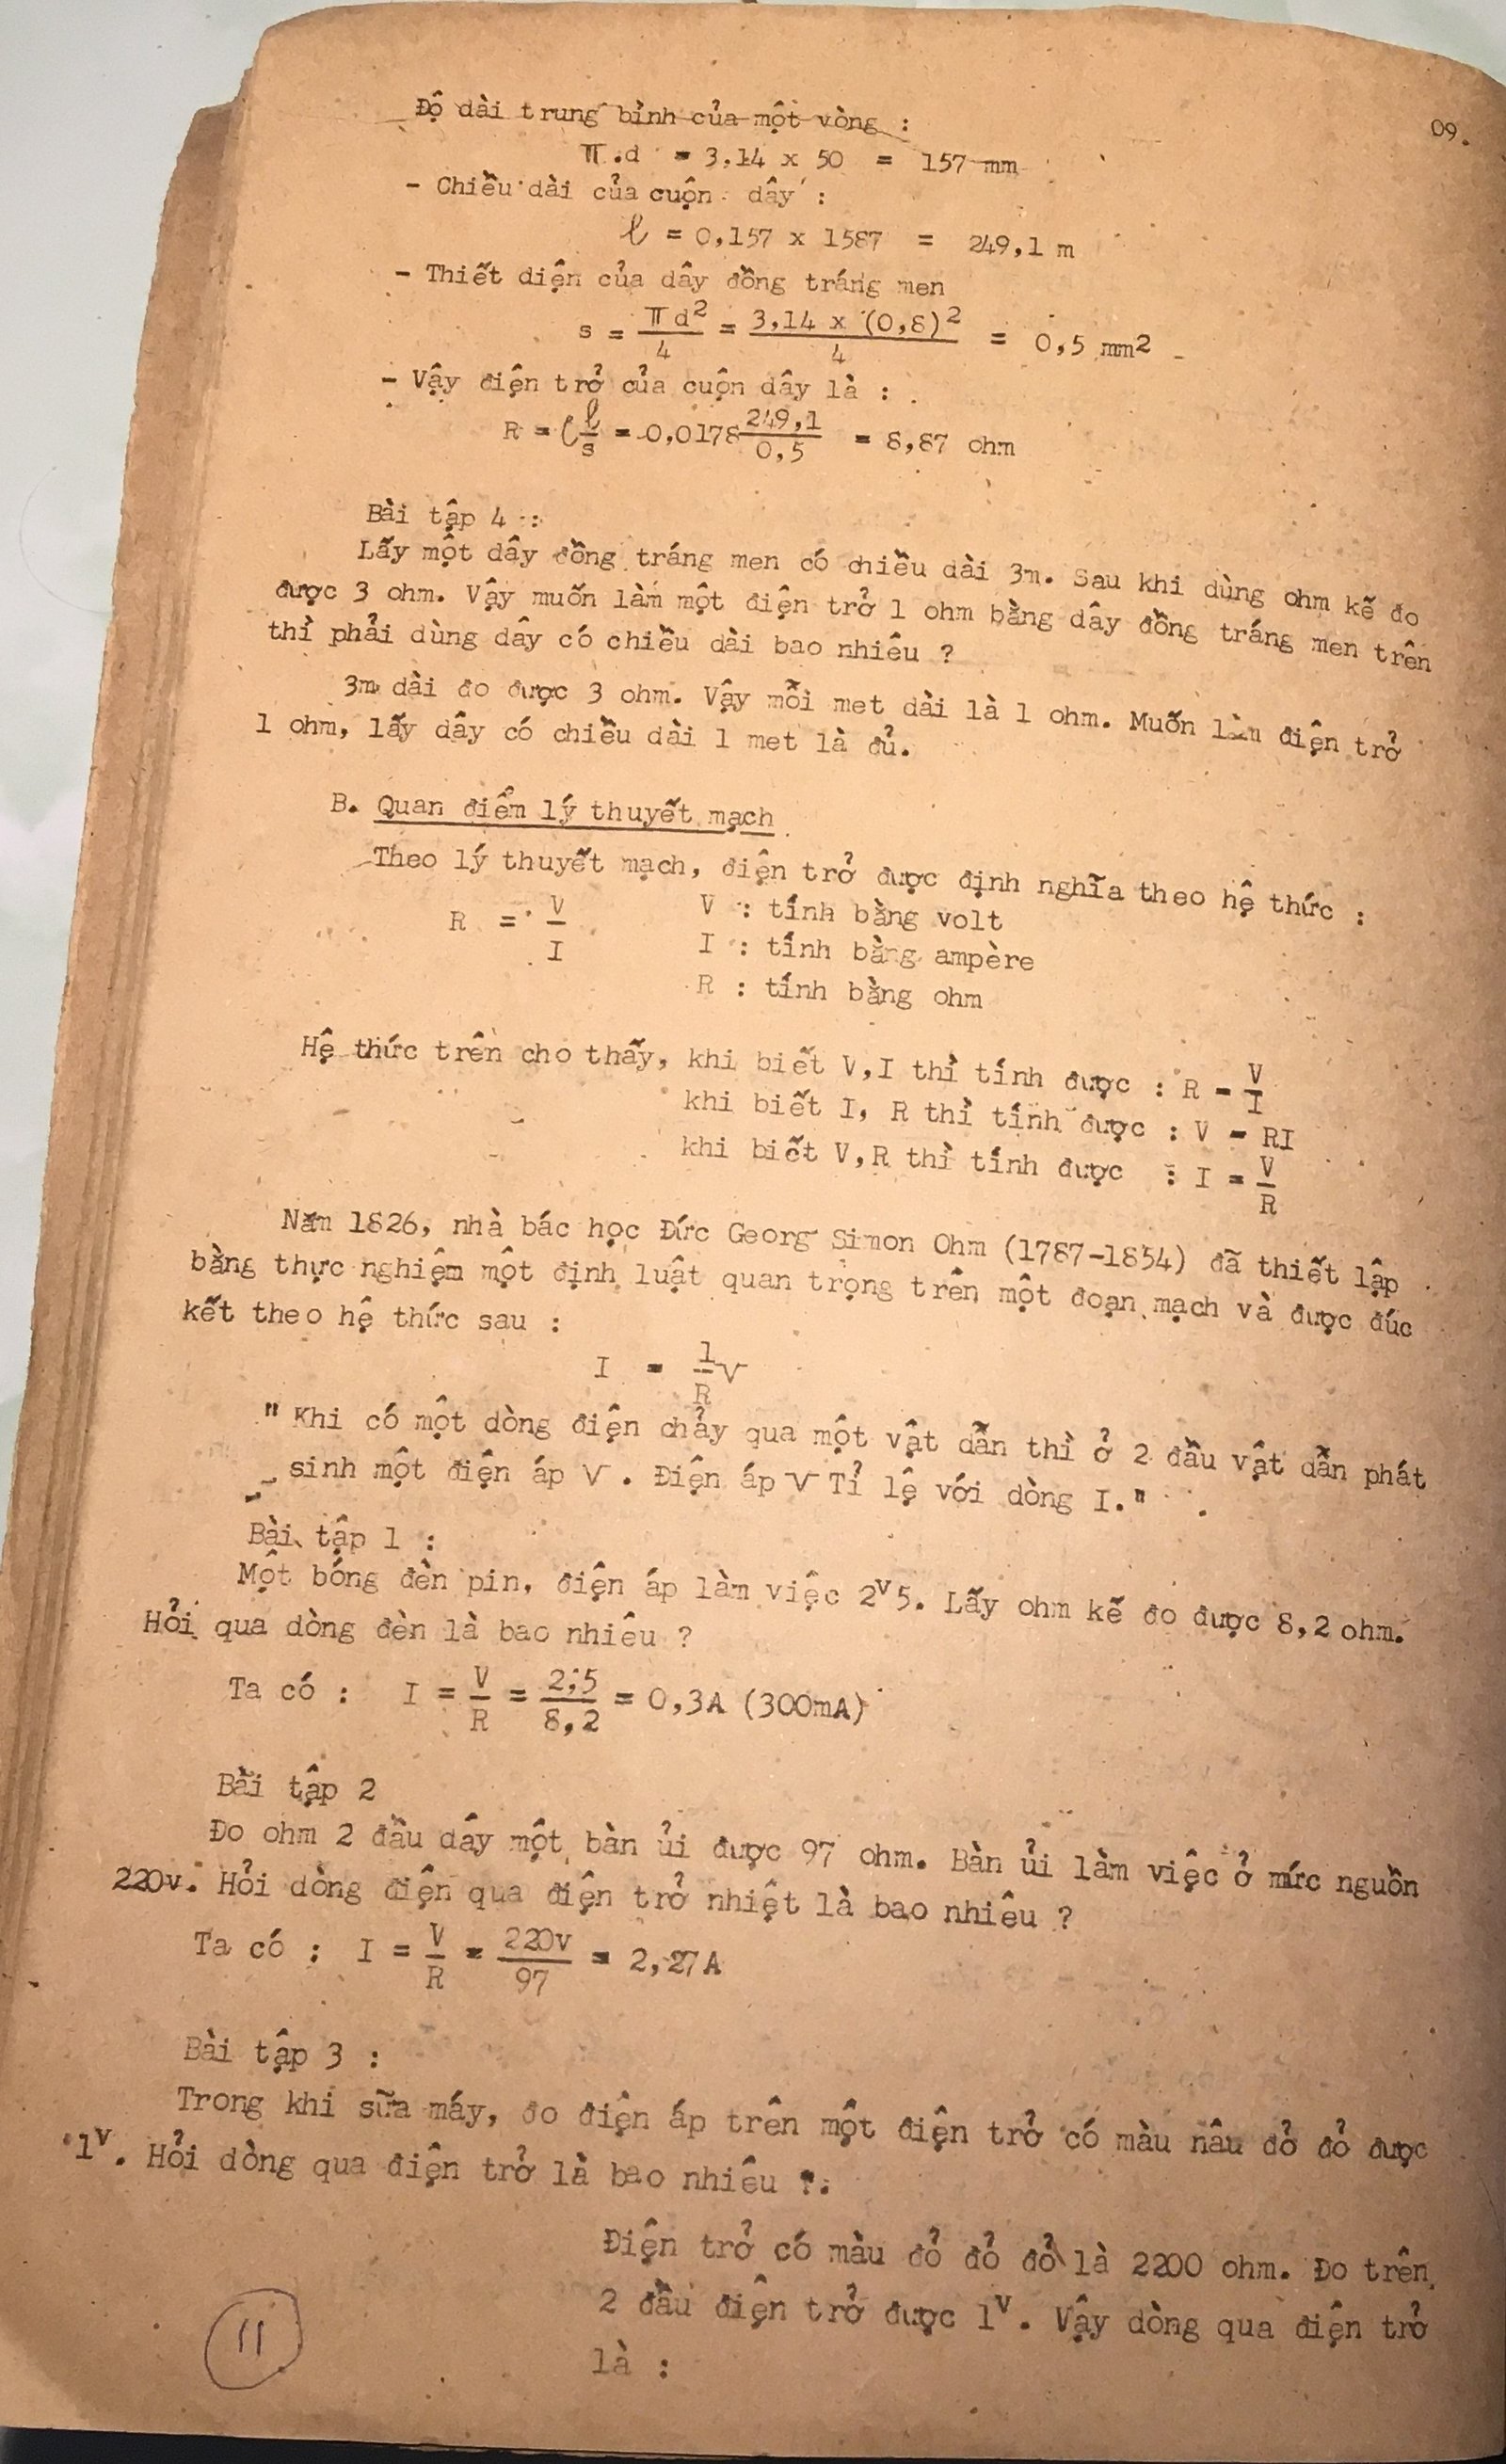 09.
Độ dài trung bình của một vòng :
π.d = 3,14 x 50 = 157 mm
- Chiều dài của cuộn dây :
ℓ = 0,157 x 1587 = 249,1 m
- Thiết diện của dây đồng tráng men
s = πd²/4 = 3,14 x (0,8)²/4 = 0,5 mm2
- Vậy điện trở của cuộn dây là :
R = ρ ℓ/s = 0,0178 249,1/0,5 = 8,87 ohm
Bài tập 4 :
Lấy một dây đồng tráng men có chiều dài 3m. Sau khi dùng ohm kế đo
được 3 ohm. Vậy muốn làm một điện trở 1 ohm bằng dây đồng tráng men trên
thì phải dùng dây có chiều dài bao nhiêu ?
3m dài đo được 3 ohm. Vậy mỗi met dài là 1 ohm. Muốn làm điện trở
1 ohm, lấy dây có chiều dài 1 met là đủ.
B. Quan điểm lý thuyết mạch
Theo lý thuyết mạch, điện trở được định nghĩa theo hệ thức :
R = V/I V : tính bằng volt
I : tính bằng ampère
R : tính bằng ohm
Hệ thức trên cho thấy, khi biết V,I thì tính được : R = V/I
khi biết I, R thì tính được : V = RI
khi biết V,R thì tính được : I = V/R
Năm 1826, nhà bác học Đức Georg Simon Ohm (1787-1854) đã thiết lập
bằng thực nghiệm một định luật quan trọng trên một đoạn mạch và được đúc
kết theo hệ thức sau :
I = 1/R V
" Khi có một dòng điện chảy qua một vật dẫn thì ở 2 đầu vật dẫn phát
sinh một điện áp V. Điện áp V Tỉ lệ với dòng I."
Bài tập 1 :
Một bóng đèn pin, điện áp làm việc 2ᵛ5. Lấy ohm kế đo được 8,2 ohm.
Hỏi qua dòng đèn là bao nhiêu ?
Ta có : I = V/R = 2,5/8,2 = 0,3A (300mA)
Bài tập 2
Đo ohm 2 đầu dây một bàn ủi được 97 ohm. Bàn ủi làm việc ở mức nguồn
220v. Hỏi dòng điện qua điện trở nhiệt là bao nhiêu ?
Ta có : I = V/R = 220v/97 = 2,27A
Bài tập 3 :
Trong khi sữa máy, đo điện áp trên một điện trở có màu nâu đỏ đỏ được
1ᵛ. Hỏi dòng qua điện trở là bao nhiêu ?.
Điện trở có màu đỏ đỏ đỏ là 2200 ohm. Đo trên
2 đầu điện trở được 1ᵛ. Vậy dòng qua điện trở
là :
11